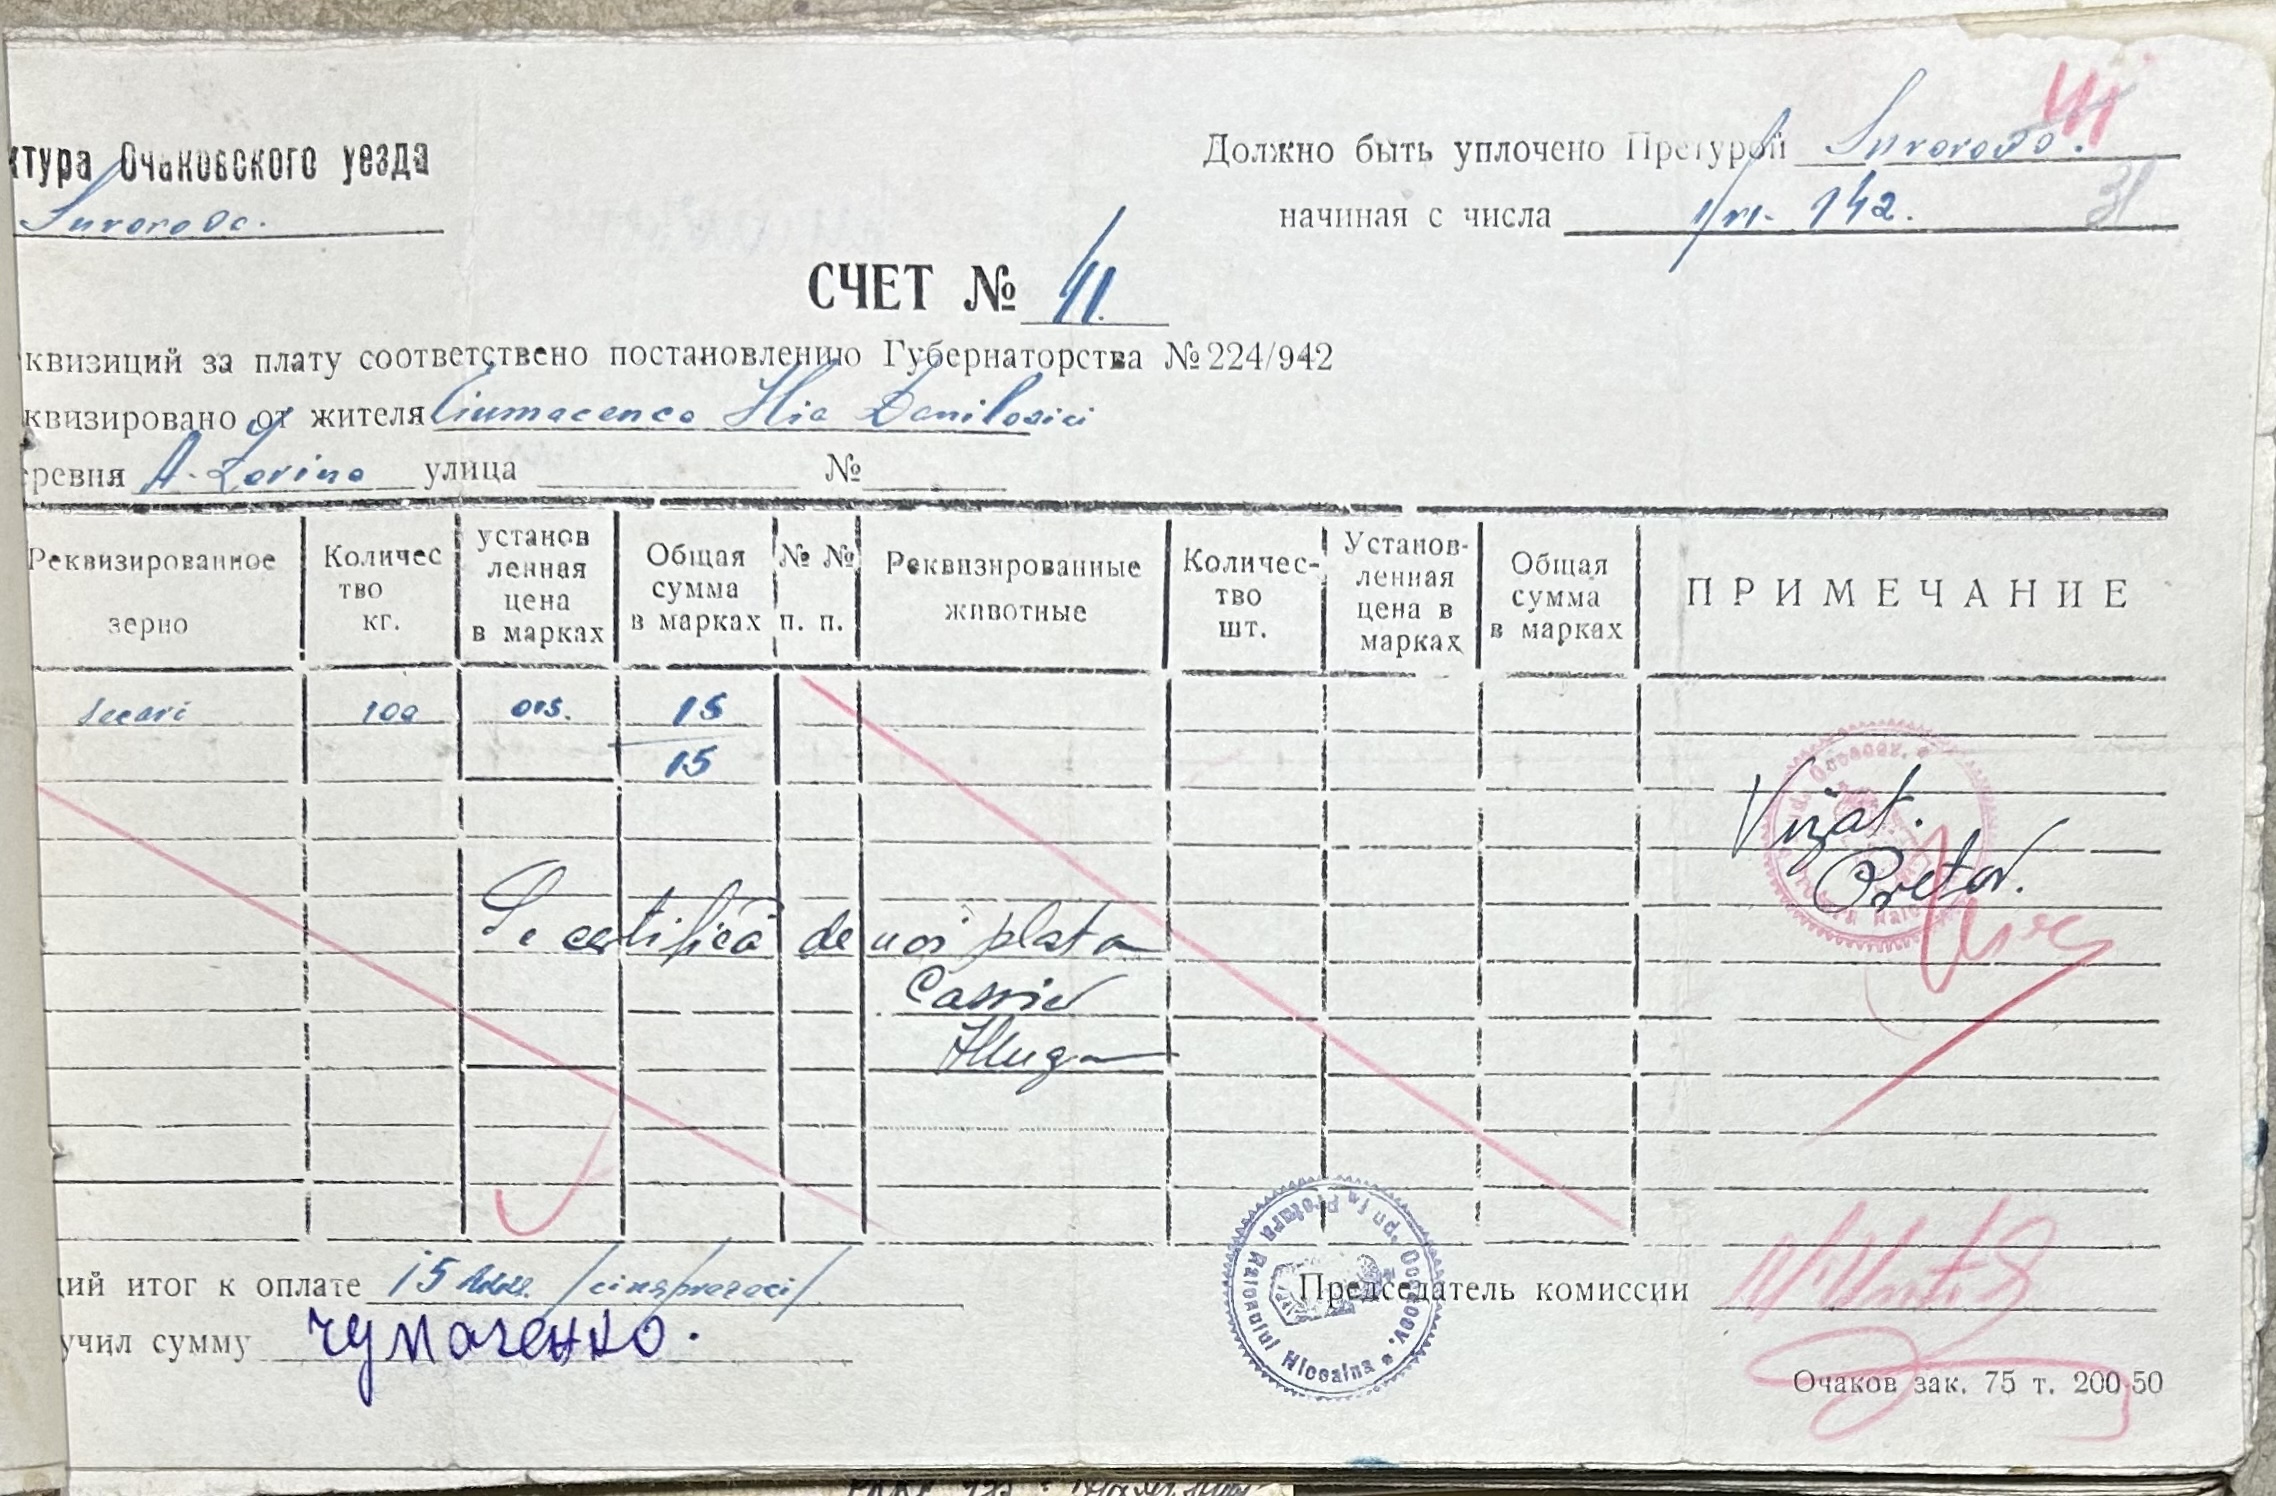 ктура Очаковского уезда
Suvorovo.
Должно быть уплочено Претурой Suvorovo.
начиная с числа 1/VI- 942.
31
СЧЕТ № 41.
квизиций за плату соответствено постановлению Губернаторства № 224/942
квизировано от жителя Ciumacenco Ilia Danilovici
еревня A. Zorino улица №
Реквизированное зерно Количес тво кг. установ ленная цена в марках Общая сумма в марках № № п. п. Реквизированные животные Количес- тво шт. Установ- ленная цена в марках Общая сумма в марках ПРИМЕЧАНИЕ
secară 100 015. 15
15
Vizat.
Pretor.
Se certifică de noi plata
Casier
щий итог к оплате 15 /cinsprezeci/
Председатель комиссии
учил сумму Чумаченко.
Pretura Raionului Nicoaina
Очаков зак. 75 т. 200-50